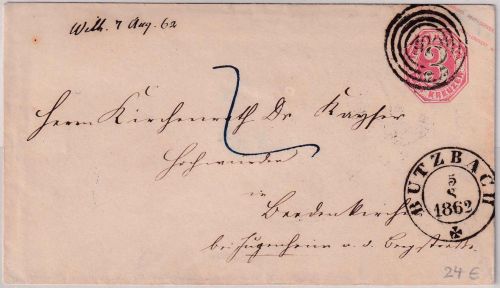 Wilh. 7 Aug. 62
3
KREUZER
Herrn Kirchenrath Dr Kayser
Hochwürden
in
Beedenkirchen
bei Jugenheim a. d. Bergstraße
BUTZBACH
5
8
1862
24 €